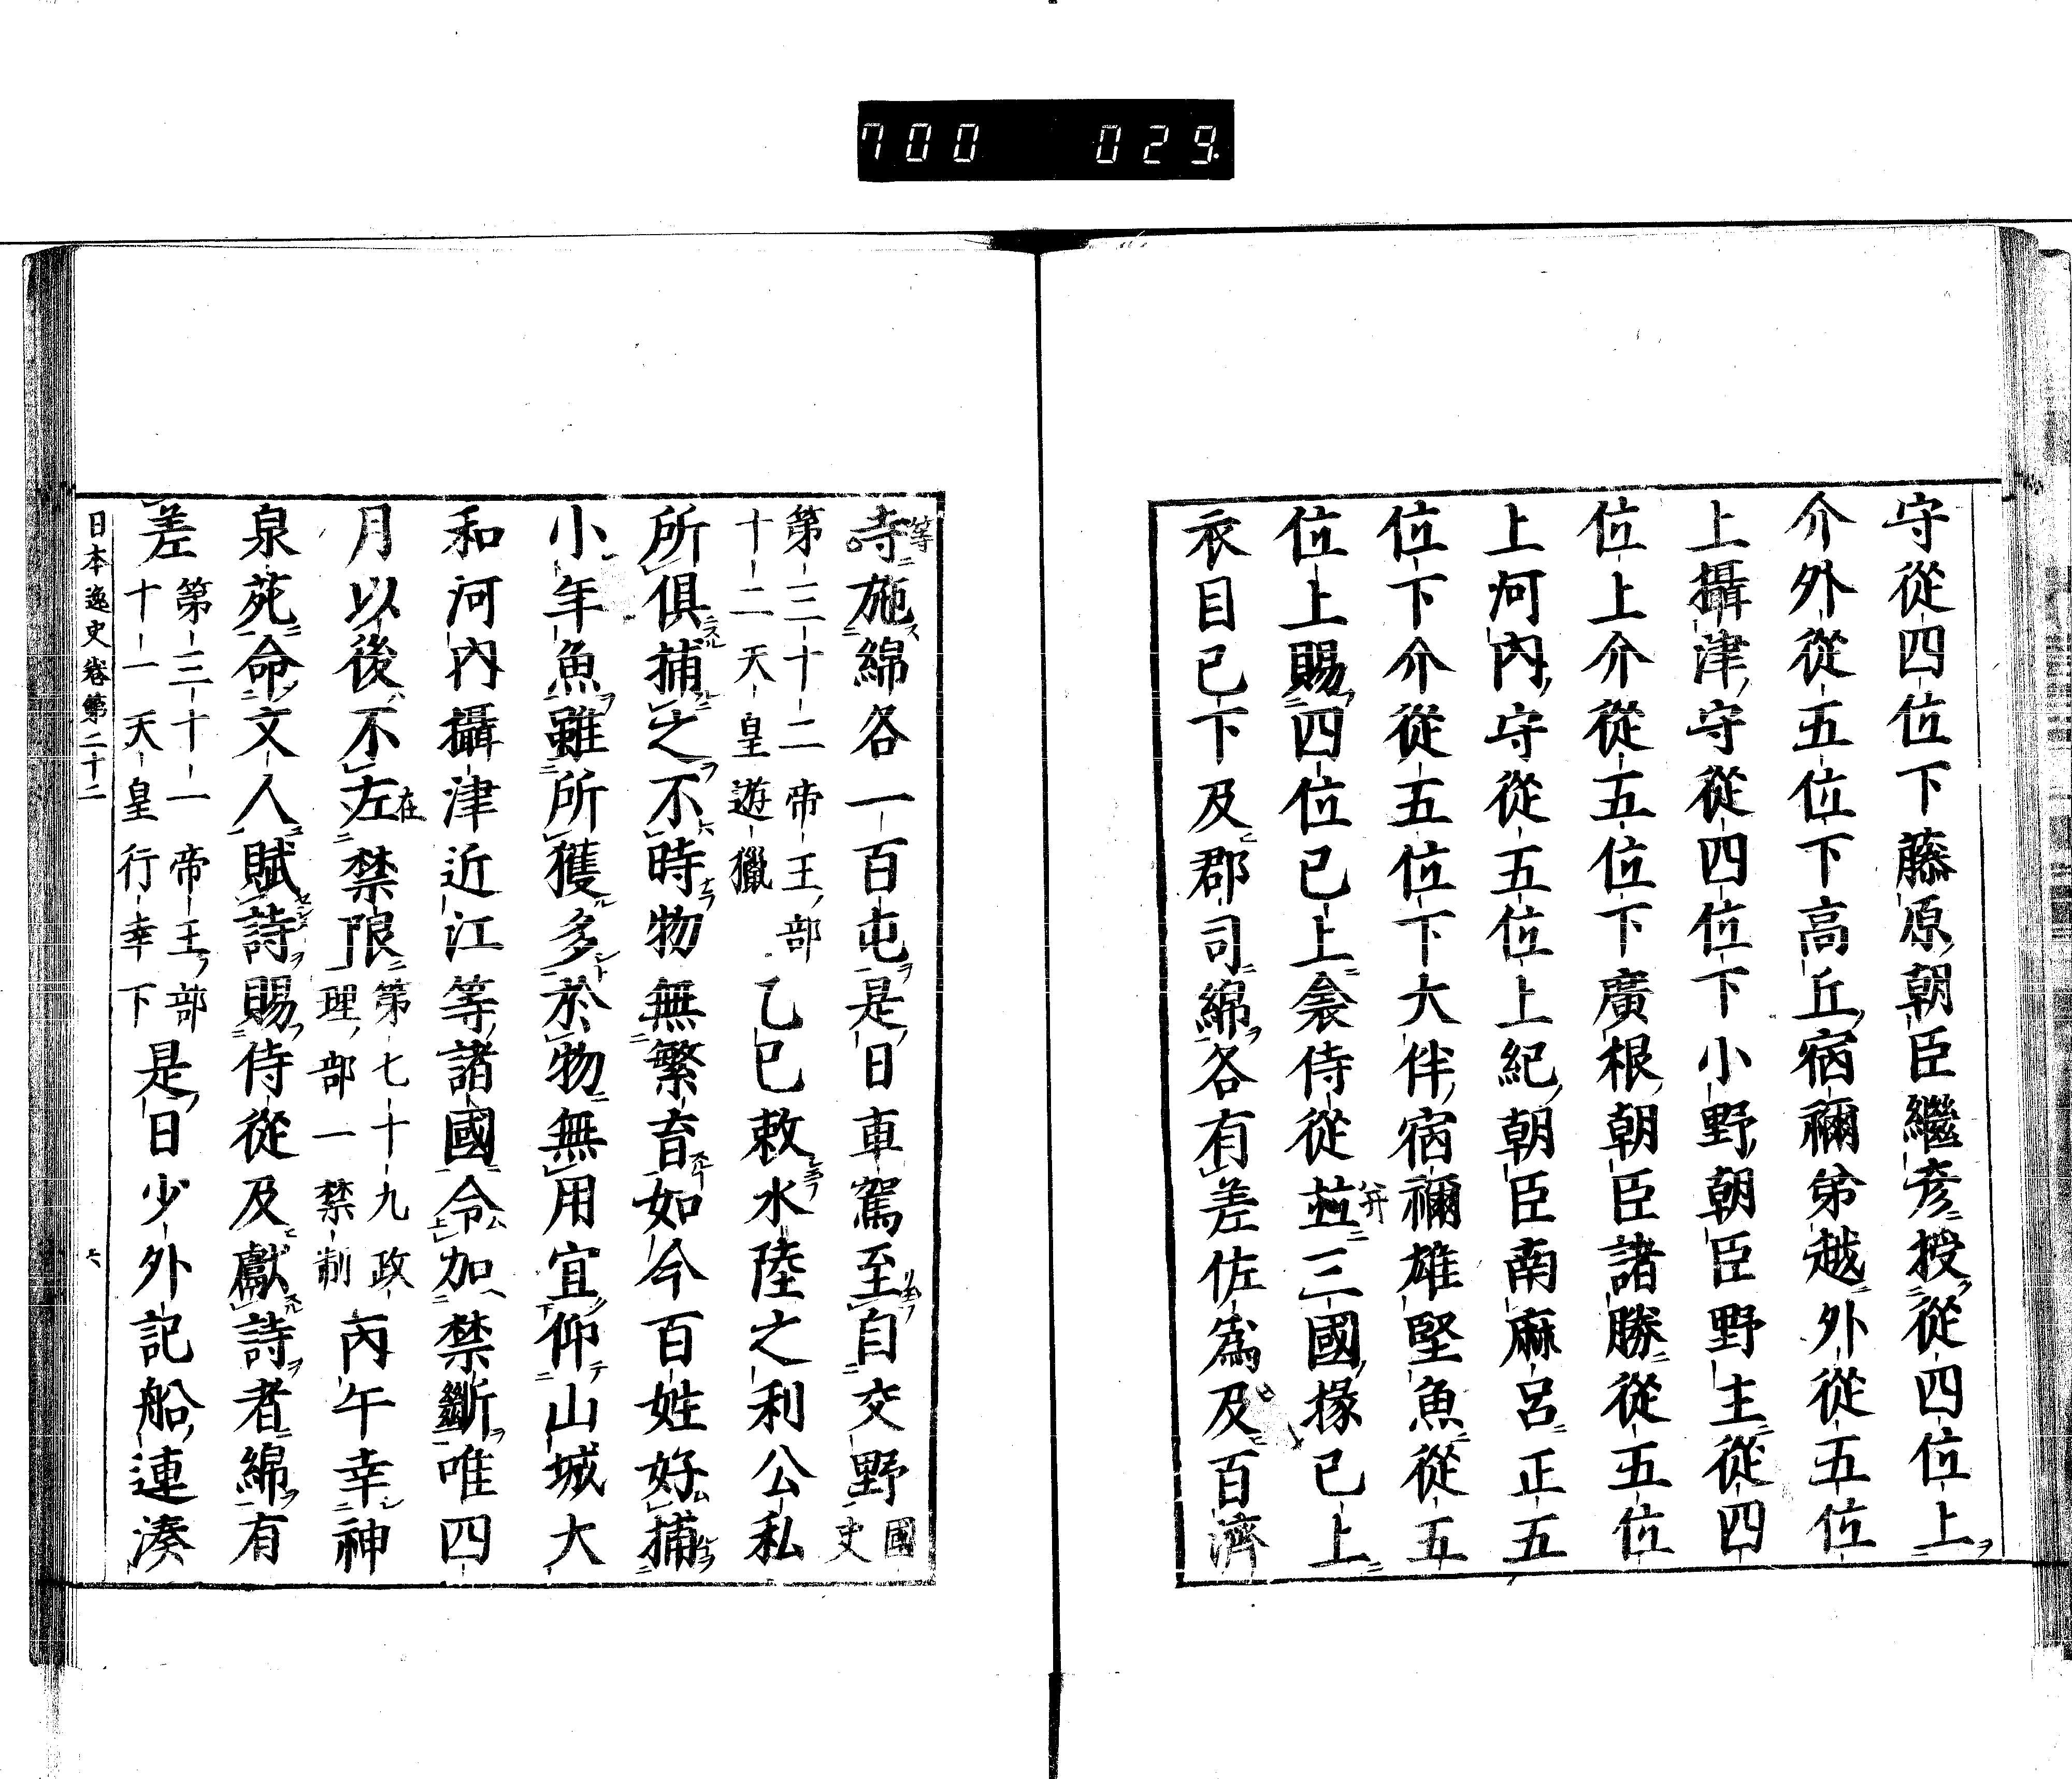 700 029
守從四位下藤原朝臣繼彦授從四位上
介外從五位下高丘宿禰弟越外從五位
上攝津守從四位下小野朝臣野主從四
位上介從五位下廣根朝臣諸勝從五位
上河內守從五位上紀朝臣南麻呂正五
位下介從五位下大伴宿禰雄堅魚從五
位上賜四位已上衾侍從並三國掾已上
衣目已下及郡司綿各有差佐爲及百濟
寺施綿各一百屯是日車駕至自交野國史
第三十二帝王部
十二天皇遊獵
乙巳敕水陸之利公私
所俱捕之不時物無繁育如今百姓好捕
小年魚雖所獲多於物無用宜仰山城大
和河內攝津近江等諸國令加禁斷唯四
月以後不左禁限第七十九政
理部一禁制
丙午幸神
泉苑命文人賦詩賜侍從及獻詩者綿有
差第三十一帝王部
十一天皇行幸下
是日少外記船連湊
日本逸史卷第二十二 六